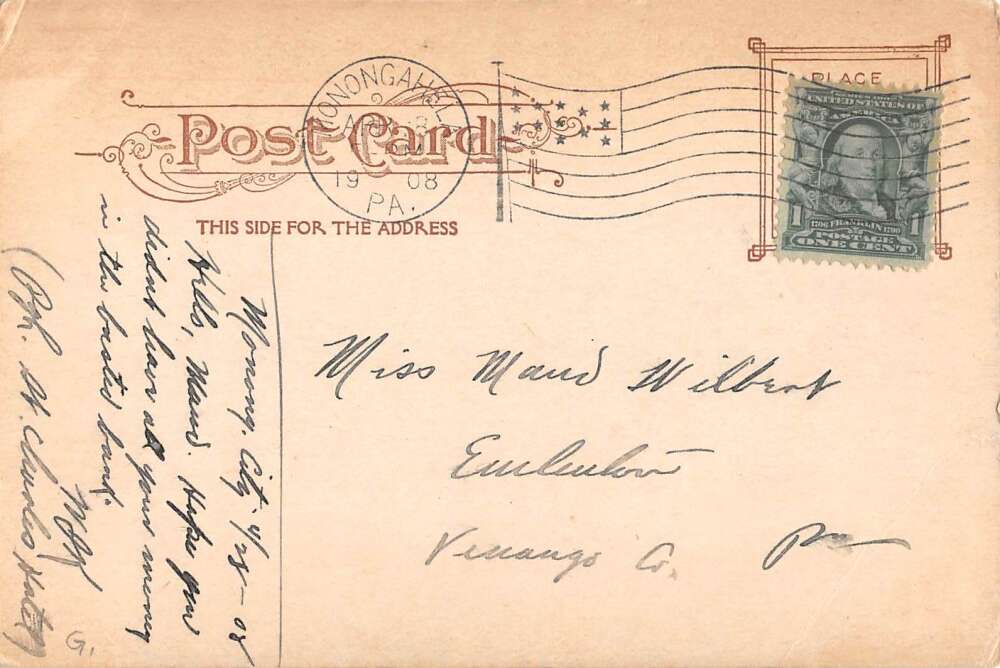 MONONGAHELA
19 08
PA.
PLACE
Post Card
THIS SIDE FOR THE ADDRESS
UNITED STATES OF
AMERICA
1 1706 FRANKLIN 1790 1
POSTAGE
ONE CENT
Miss Maud Wilbert
Emlenton
Venango Co. Pa
Monong. City 4/28-08
Hello, Maud. Hope you
didnt have all your money
in the busted bank.
(Oph. St. Charles Hotel)
G.